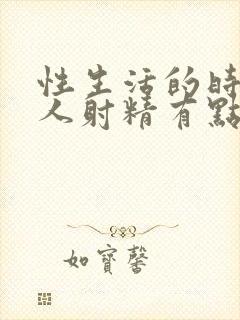 性生活的時
人射精有點
如寶馨